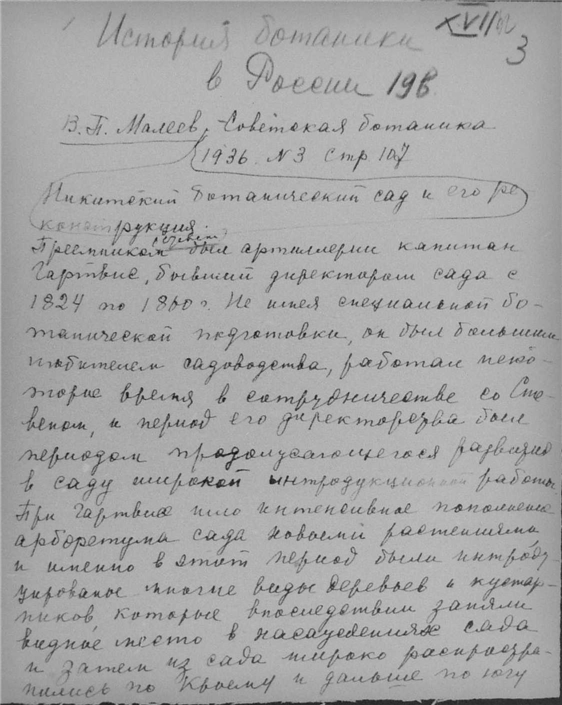 XVII/62
3
История ботаники
в России 19в.
В.П. Малеев, Советская ботаника
1936 N3 стр 107
Никитский ботанический сад и его ре
конструкция.
Преемником Стевена был артиллерии капитан
Гартвис, бывший директором сада с
1824 по 1860 г. Не имея специальной бо-
танической подготовки, он был большим
любителем садоводства, работал неко-
торое время в сотрудничестве со Сте-
веном, и период его директорства был
периодом продолжающегося развития
в саду широкой интродукционной работы.
При Гартвисе шло интенсивное пополнение
арборетума сада новыми растениями,
и именно в этот период были интроду-
цированы многие виды деревьев и кустар-
ников, которые впоследствии заняли
видное место в насаждениях сада
и затем из сада широко распростра-
нились по Крыму и дальше по югу